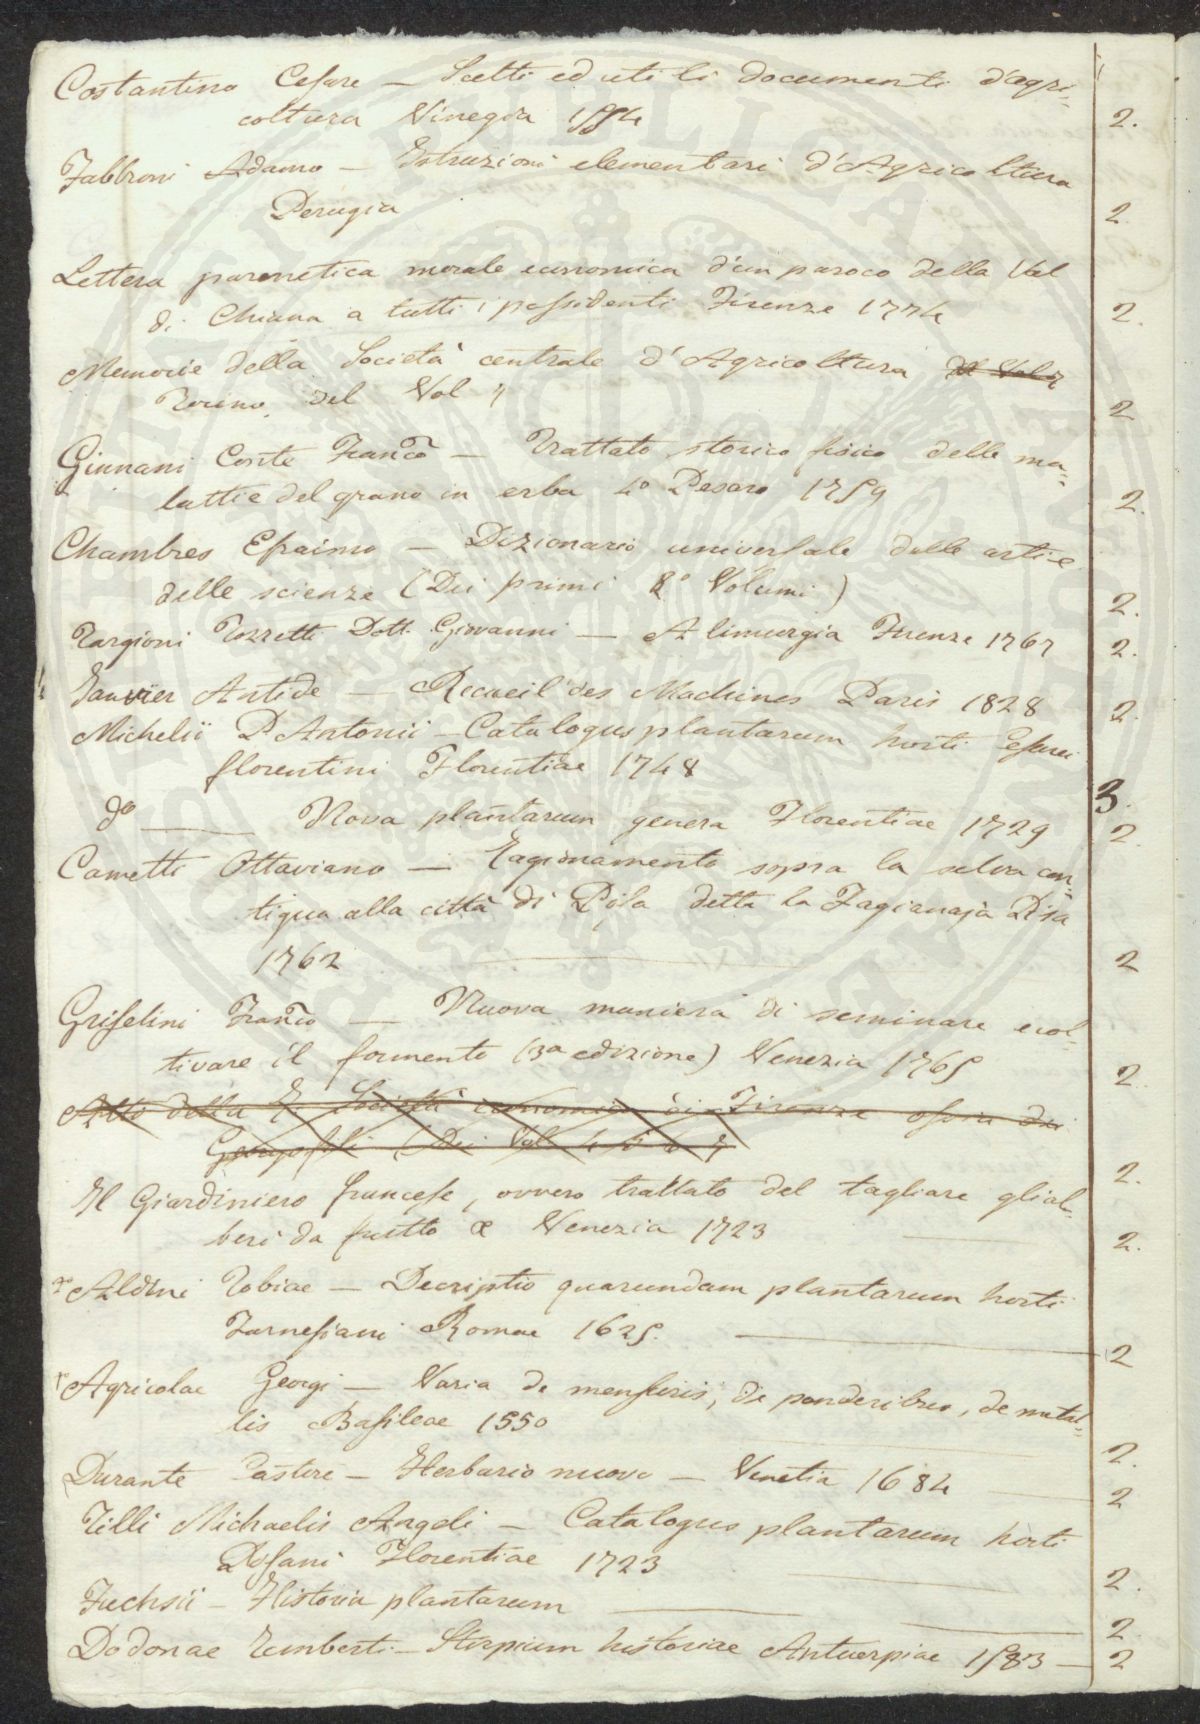 Costantino Cesare — Scelti ed utili documenti d'agri=
coltura Vinegia 1554 2.
Fabbroni Adamo — Istruzioni elementari d'Agricoltura
Perugia 2
Lettera parenetica morale economica d'un paroco della Val
di Chiana a tutti i possidenti Firenze 1774 2.
Memorie della Società centrale d'Agricoltura
Torino del Vol 2
Ginnani Conte Franco — Trattato storico fisico delle ma=
lattie del grano in erba 4o Pesaro 1759 2.
Chambres Efraimo — Dizionario universale delle arti e
delle scienze (Dei primi 8o Volumi) 2.
Targioni Tozzetti Dott. Giovanni — Alimurgia Firenze 1767 2.
Janvier Antide — Recueil des Machines Paris 1828 2.
Michelii P Antonii — Catalogus plantarum horti Cesarei
florentini Florentiae 1748 3.
do —— Nova plantarum genera Florentiae 1729 2.
Cametti Ottaviano — Ragionamento sopra la selva con=
tigua alla città di Pisa detta la Fagianaja Pisa
1762 2
Griselini Franco — Nuova maniera di seminare e col=
tivare il formento (3a edizione) Venezia 1765 2
Atto della R. Società economica di Firenze ossia dei
Georgofili (Dei Vol 2.
Il Giardiniero francese, ovvero trattato del tagliare gli al=
beri da frutto & Venezia 1723 2.
2o Aldini Tobiae — Decriptio quarundam plantarum horti
Farnesiani Romae 1625. 2
1o Agricolae Georgi — Varia de mensuris, de ponderibus, de metal=
lis Basileae 1550 2.
Durante Castore — Herbario nuovo — Venetia 1684 2
Tilli Michaelis Angeli — Catalogus plantarum horti
Pisani Florentiae 1723 2.
Fuchsii — Historia plantarum 2.
Dodonae Remberti — Stirpium historiae Antuerpiae 1583 — 2